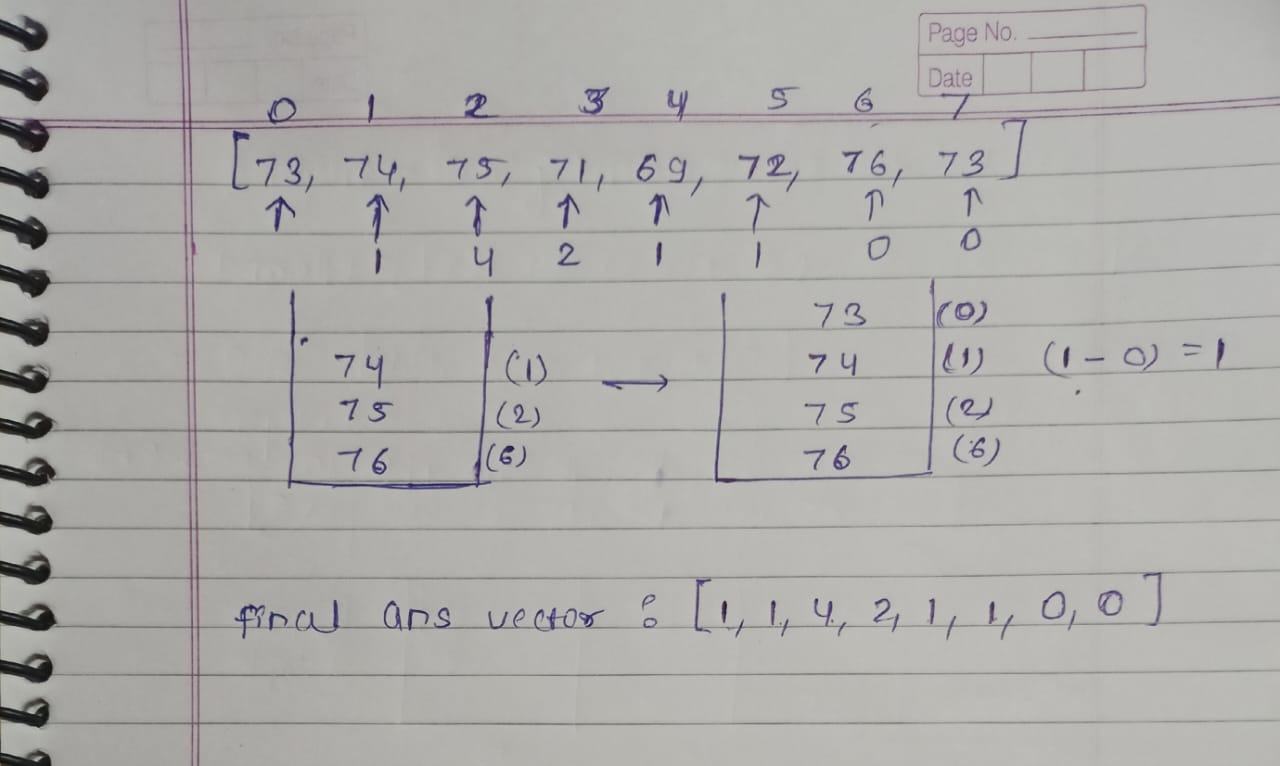 Page No.
Date
0 1 2 3 4 5 6 7
[73, 74, 75, 71, 69, 72, 76, 73]
↑ ↑ ↑ ↑ ↑ ↑ ↑ ↑
1 4 2 1 1 0 0
73 (0)
74 (1) → 74 (1) (1-0) = 1
75 (2) 75 (2)
76 (6) 76 (6)
final ans vector : [1, 1, 4, 2, 1, 1, 0, 0]